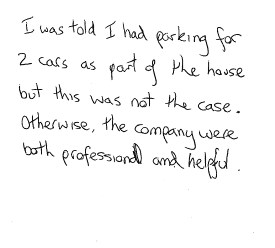 I was told I had parking for
2 cars as part of the house
but this was not the case.
Otherwise, the company were
both professional and helpful.